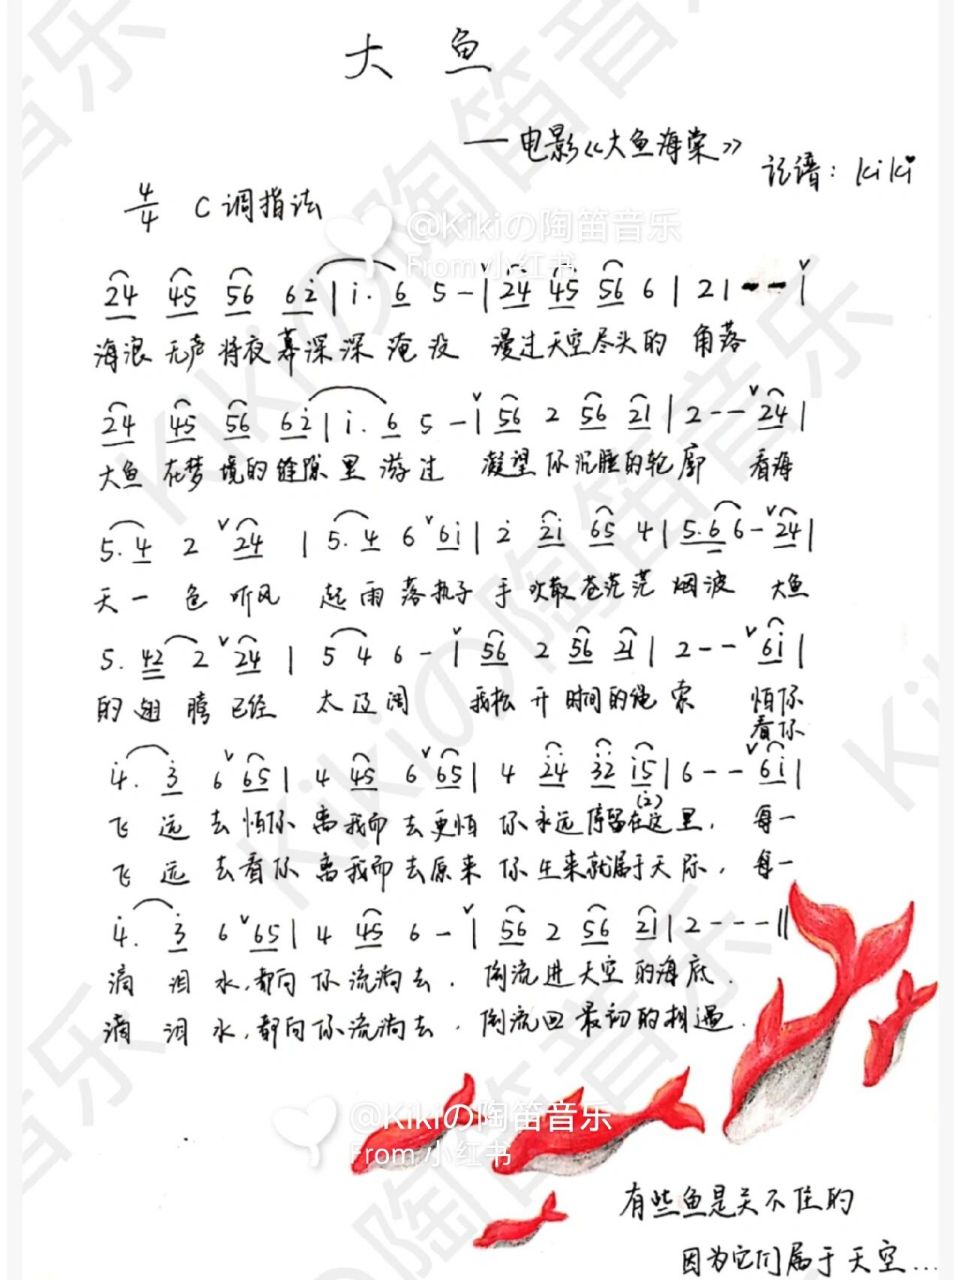 大鱼
—电影《大鱼海棠》
记谱：kiki
4/4 C调指法
@Kikiの陶笛音乐
From 小红书
24 45 56 6i | i. 6 5 - | 24 45 56 6 | 21 - - |
海浪无声将夜幕深深淹没 漫过天空尽头的角落
24 45 56 6i | i. 6 5 - | 56 2 56 21 | 2 - - 24 |
大鱼在梦境的缝隙里游过 凝望你沉睡的轮廓 看海
5. 4 2 24 | 5. 4 6 6i | 2 21 65 4 | 5. 6 6 - 24 |
天一色听风起雨落执子手吹散苍茫茫烟波 大鱼
5. 42 2 24 | 5 4 6 - | 56 2 56 21 | 2 - - 6i |
的翅膀已经太辽阔 我松开时间的绳索 怕你
看你
4. 3 6 65 | 4 45 6 65 | 4 24 32 i5 | 6 - - 6i |
(2)
飞远去怕你离我而去更怕你永远停留在这里，每一
飞远去看你离我而去原来你生来就属于天际，每一
4. 3 6 65 | 4 45 6 - | 56 2 56 21 | 2 - - - ||
滴泪水，都向你流淌去．倒流进天空的海底．
滴泪水，都向你流淌去．倒流回最初的相遇．
@Kikiの陶笛音乐
From 小红书
有些鱼是关不住的
因为它们属于天空...